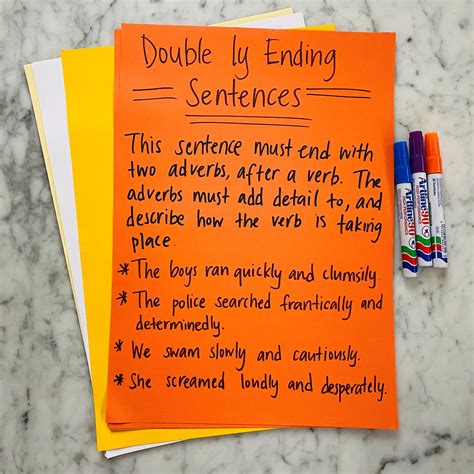 Double ly Ending
Sentences
This sentence must end with
two adverbs, after a verb. The
adverbs must add detail to, and
describe how the verb is taking
place.
* The boys ran quickly and clumsily.
* The police searched frantically and
determinedly.
* We swam slowly and cautiously.
* She screamed loudly and desperately.
Artline 90
Artline 90
Artline 90